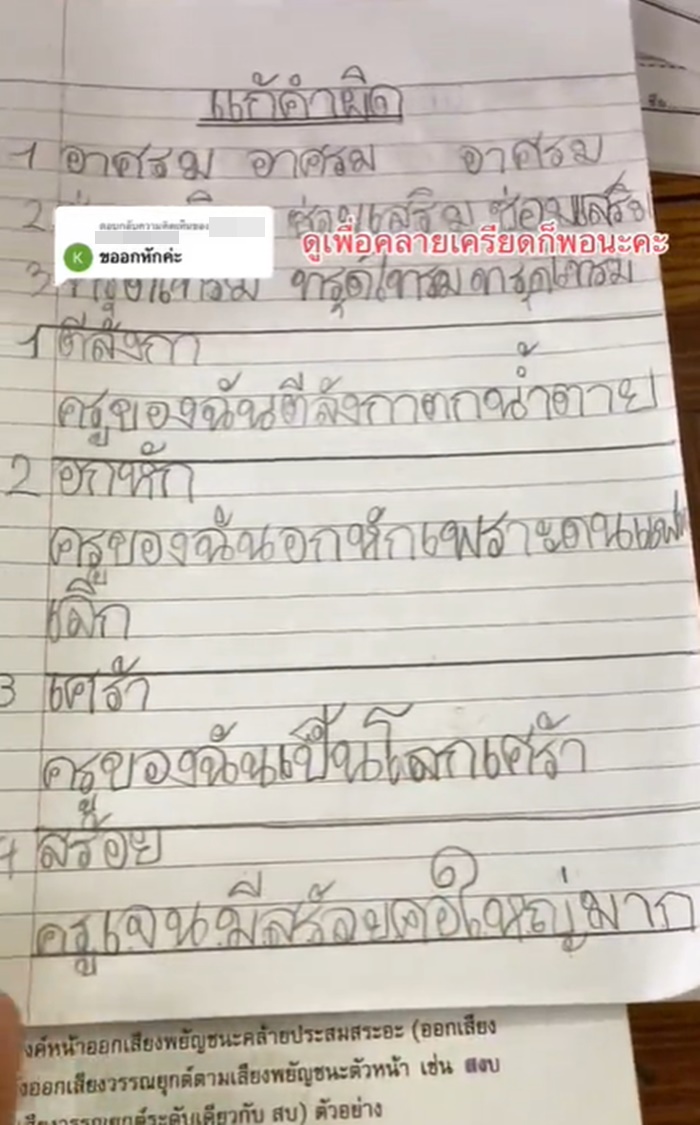 แก้คำผิด
1 อาศรม อาศรม อาศรม
2 ซ่อมเสริม ซ่อมเสริม
ตอบกลับความคิดเห็นของ
K ขออกหักค่ะ
ดูเพื่อคลายเครียดก็พอนะคะ
3 ทรุดโทรม ทรุดโทรม ทรุดโทรม
1 ตีลังกา
ครูของฉันตีลังกาตกน้ำตาย
2 อกหัก
ครูของฉันอกหักเพราะดนแฟน
เลิก
3 เศร้า
ครูของฉันเป็นโลกเศร้า
4 สร้อย
ครูเจนมีสร้อยคอใหญ่มาก
งค์หน้าออกเสียงพยัญชนะคล้ายประสมสระอะ (ออกเสียง
งออกเสียงวรรณยุกต์ตามเสียงพยัญชนะตัวหน้า เช่น สงบ
สียงวรรณยุกต์ระดับเดียวกับ สบ) ตัวอย่าง